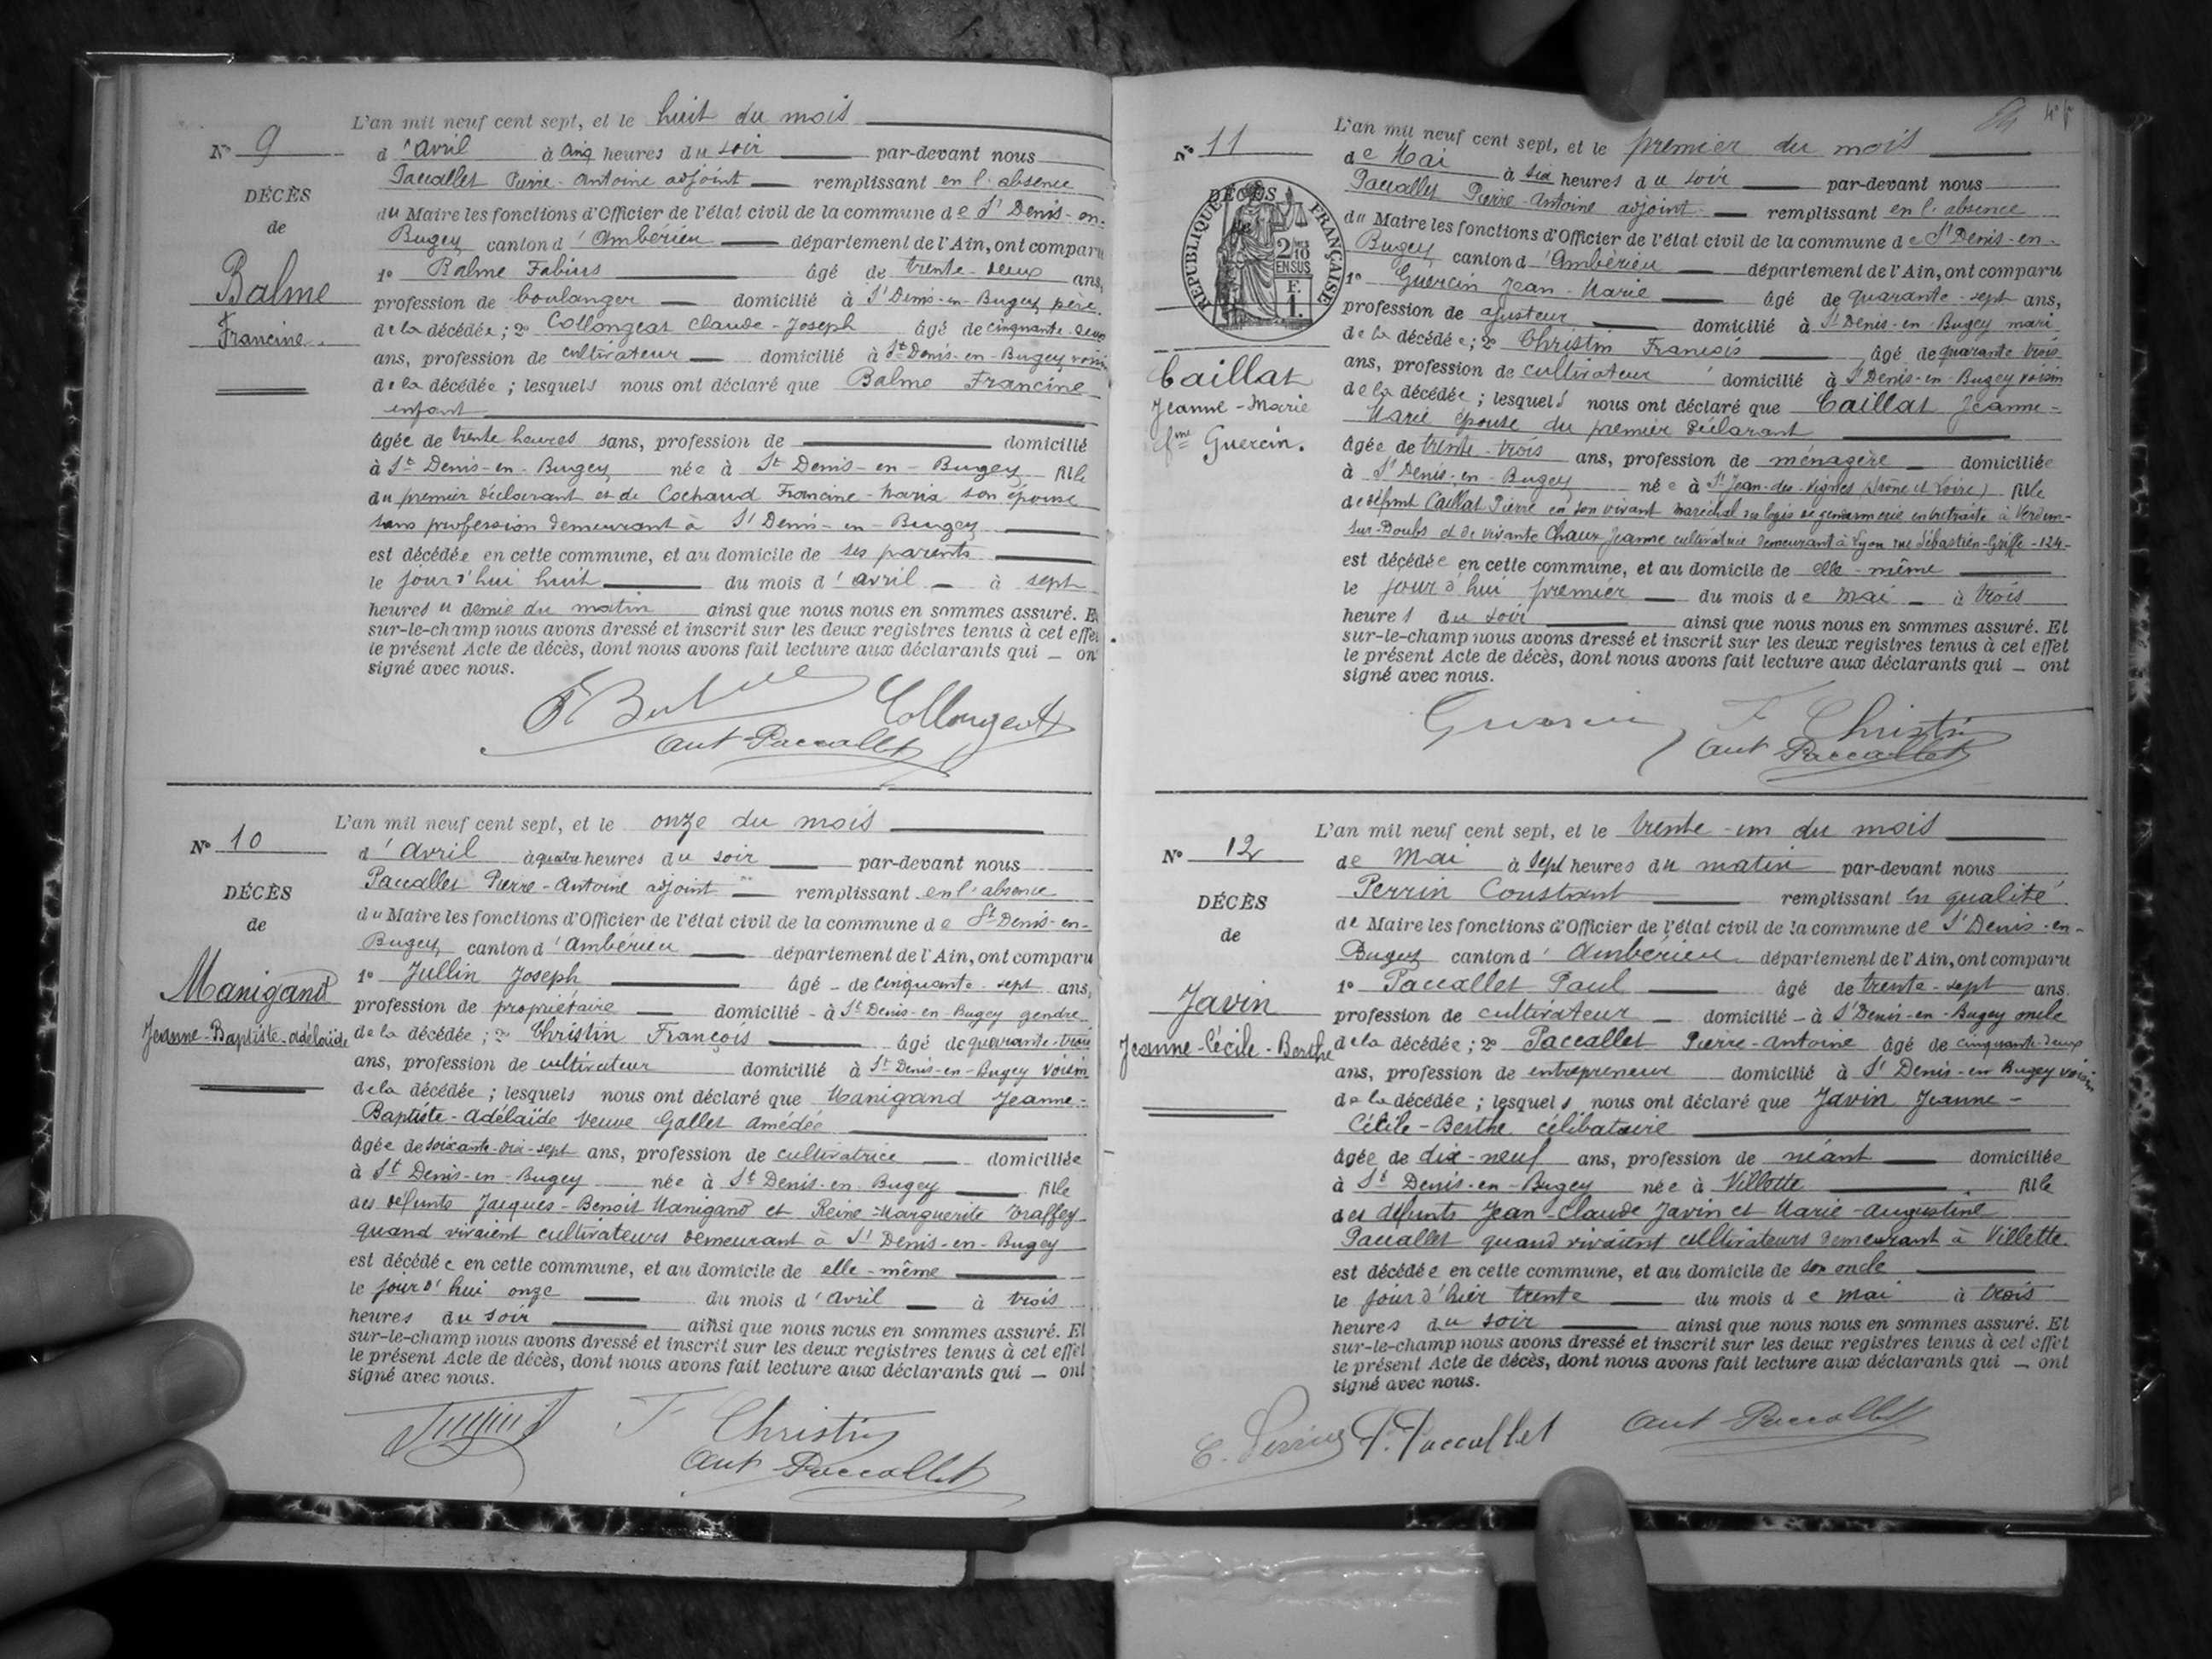 L'an mil neuf cent sept, et le huit du mois
N° 9
d'avril à cinq heures du soir par-devant nous
Paccallet Pierre-Antoine adjoint remplissant en l'absence
DÉCÈS
du Maire les fonctions d'Officier de l'état civil de la commune de St Denis-en-
de
Bugey canton d'Ambérieu département de l'Ain, ont comparu
Balme
1° Balme Fabius âgé de trente-deux ans,
profession de boulanger domicilié à St Denis-en-Bugey père
Francine.
de la décédée; 2° Collongeat Claude-Joseph âgé de cinquante-deux
ans, profession de cultivateur domicilié à St Denis-en-Bugey voisin
de la décédée; lesquels nous ont déclaré que Balme Francine
enfant
âgée de trente heures sans, profession de domicilié
à St Denis-en-Bugey née à St Denis-en-Bugey fille
du premier déclarant et de Cochaud Francine-Maria son épouse
sans profession demeurant à St Denis-en-Bugey
est décédée en cette commune, et au domicile de ses parents
le jour d'hui huit du mois d'avril à sept
heures et demie du matin ainsi que nous nous en sommes assuré. Et
sur-le-champ nous avons dressé et inscrit sur les deux registres tenus à cet effet
le présent Acte de décès, dont nous avons fait lecture aux déclarants qui ont
signé avec nous.
Collongeat
Ant Paccallet
L'an mil neuf cent sept, et le onze du mois
N° 10
d'avril à quatre heures du soir par-devant nous
Paccallet Pierre-Antoine adjoint remplissant en l'absence
DÉCÈS
du Maire les fonctions d'Officier de l'état civil de la commune de St Denis-en-
de
Bugey canton d'Ambérieu département de l'Ain, ont comparu
1° Jullin Joseph âgé de cinquante-sept ans,
Manigand
profession de propriétaire domicilié à St Denis-en-Bugey gendre
Jeanne-Baptiste-Adélaïde
de la décédée; 2° Christin François âgé de quarante-trois
ans, profession de cultivateur domicilié à St Denis-en-Bugey voisin
de la décédée; lesquels nous ont déclaré que Manigand Jeanne-
Baptiste-Adélaïde veuve Gallet Amédée
âgée de soixante-dix-sept ans, profession de cultivatrice domiciliée
à St Denis-en-Bugey née à St Denis-en-Bugey fille
des défunts Jacques-Benoit Manigand et Reine-Marguerite Traffey
quand vivaient cultivateurs demeurant à St Denis-en-Bugey
est décédée en cette commune, et au domicile de elle-même
le jour d'hui onze du mois d'avril à trois
heures du soir ainsi que nous nous en sommes assuré. Et
sur-le-champ nous avons dressé et inscrit sur les deux registres tenus à cet effet
le présent Acte de décès, dont nous avons fait lecture aux déclarants qui ont
signé avec nous.
F Christin
Ant Paccallet
L'an mil neuf cent sept, et le premier du mois
N° 11
de Mai à six heures du soir par-devant nous
Paccallet Pierre-Antoine adjoint remplissant en l'absence
DÉCÈS
RÉPUBLIQUE FRANÇAISE
2/10 EN SUS
F. 1.
du Maire les fonctions d'Officier de l'état civil de la commune de St Denis-en-
Bugey canton d'Ambérieu département de l'Ain, ont comparu
1° Guercin Jean-Marie âgé de quarante-sept ans,
profession de ajusteur domicilié à St Denis-en-Bugey mari
de la décédée; 2° Christin François âgé de quarante trois
Caillat
ans, profession de cultivateur domicilié à St Denis-en-Bugey voisin
Jeanne-Marie
de la décédée; lesquels nous ont déclaré que Caillat Jeanne-
fme Guercin.
Marie épouse du premier déclarant
âgée de trente-trois ans, profession de ménagère domiciliée
à St Denis-en-Bugey née à St Jean-des-Vignes (Saône et Loire) fille
de défunt Caillat Pierre en son vivant maréchal des logis de gendarmerie en retraite à Verdun-
sur-Doubs et de vivante Chaux Jeanne cultivatrice demeurant à Lyon rue Sébastien-Griffe-124-
est décédée en cette commune, et au domicile de elle-même
le jour d'hui premier du mois de mai à trois
heures du soir ainsi que nous nous en sommes assuré. Et
sur-le-champ nous avons dressé et inscrit sur les deux registres tenus à cet effet
le présent Acte de décès, dont nous avons fait lecture aux déclarants qui ont
signé avec nous.
Guercin F Christin
Ant Paccallet
L'an mil neuf cent sept, et le trente-un du mois
N° 12
de Mai à sept heures du matin par-devant nous
Perrin Constant remplissant en qualité
DÉCÈS
de Maire les fonctions d'Officier de l'état civil de la commune de St Denis-en-
de
Bugey canton d'Ambérieu département de l'Ain, ont comparu
1° Paccallet Paul âgé de trente-sept ans.
Javin
profession de cultivateur domicilié à St Denis-en-Bugey oncle
Jeanne-Cécile-Berthe
de la décédée; 2° Paccallet Pierre-Antoine âgé de cinquante-deux
ans, profession de entrepreneur domicilié à St Denis-en Bugey voisin
de la décédée; lesquels nous ont déclaré que Javin Jeanne-
Cécile-Berthe célibataire
âgée de dix-neuf ans, profession de néant domiciliée
à St Denis-en-Bugey née à Villette fille
des défunts Jean-Claude Javin et Marie-Augustine
Paccallet quand vivaient cultivateurs demeurant à Villette.
est décédée en cette commune, et au domicile de son oncle
le jour d'hier trente du mois de mai à trois
heures du soir ainsi que nous nous en sommes assuré. Et
sur-le-champ nous avons dressé et inscrit sur les deux registres tenus à cet effet
le présent Acte de décès, dont nous avons fait lecture aux déclarants qui ont
signé avec nous.
C. Perrin P. Paccallet Ant Paccallet